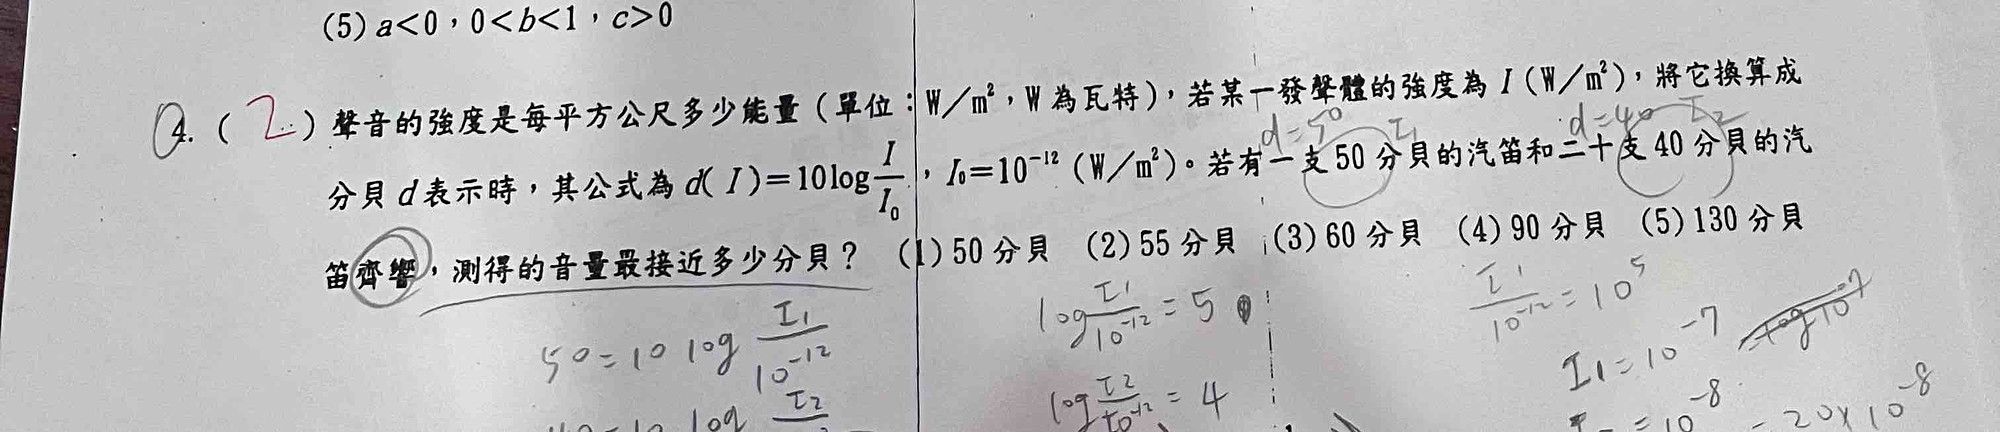 (5) a<0，0<b<1，c>0
4. ( 2 ) 聲音的強度是每平方公尺多少能量（單位：W／m²，W 為瓦特），若某一發聲體的強度為 I（W／m²），將它換算成
d=50 I₁ d=40 I₂
分貝 d 表示時，其公式為 d( I )=10log I/I₀，I₀=10⁻¹²（W／m²）。若有一支 50 分貝的汽笛和二十支 40 分貝的汽
笛齊響，測得的音量最接近多少分貝？ (1) 50 分貝 (2) 55 分貝 (3) 60 分貝 (4) 90 分貝 (5) 130 分貝
50=10 log I₁/10⁻¹² log I₁/10⁻¹² = 5 I₁/10⁻¹² = 10⁵
I₁=10⁻⁷
log I₂/10⁻¹² = 4
10 log I₂ =10⁻⁸ =20×10⁻⁸